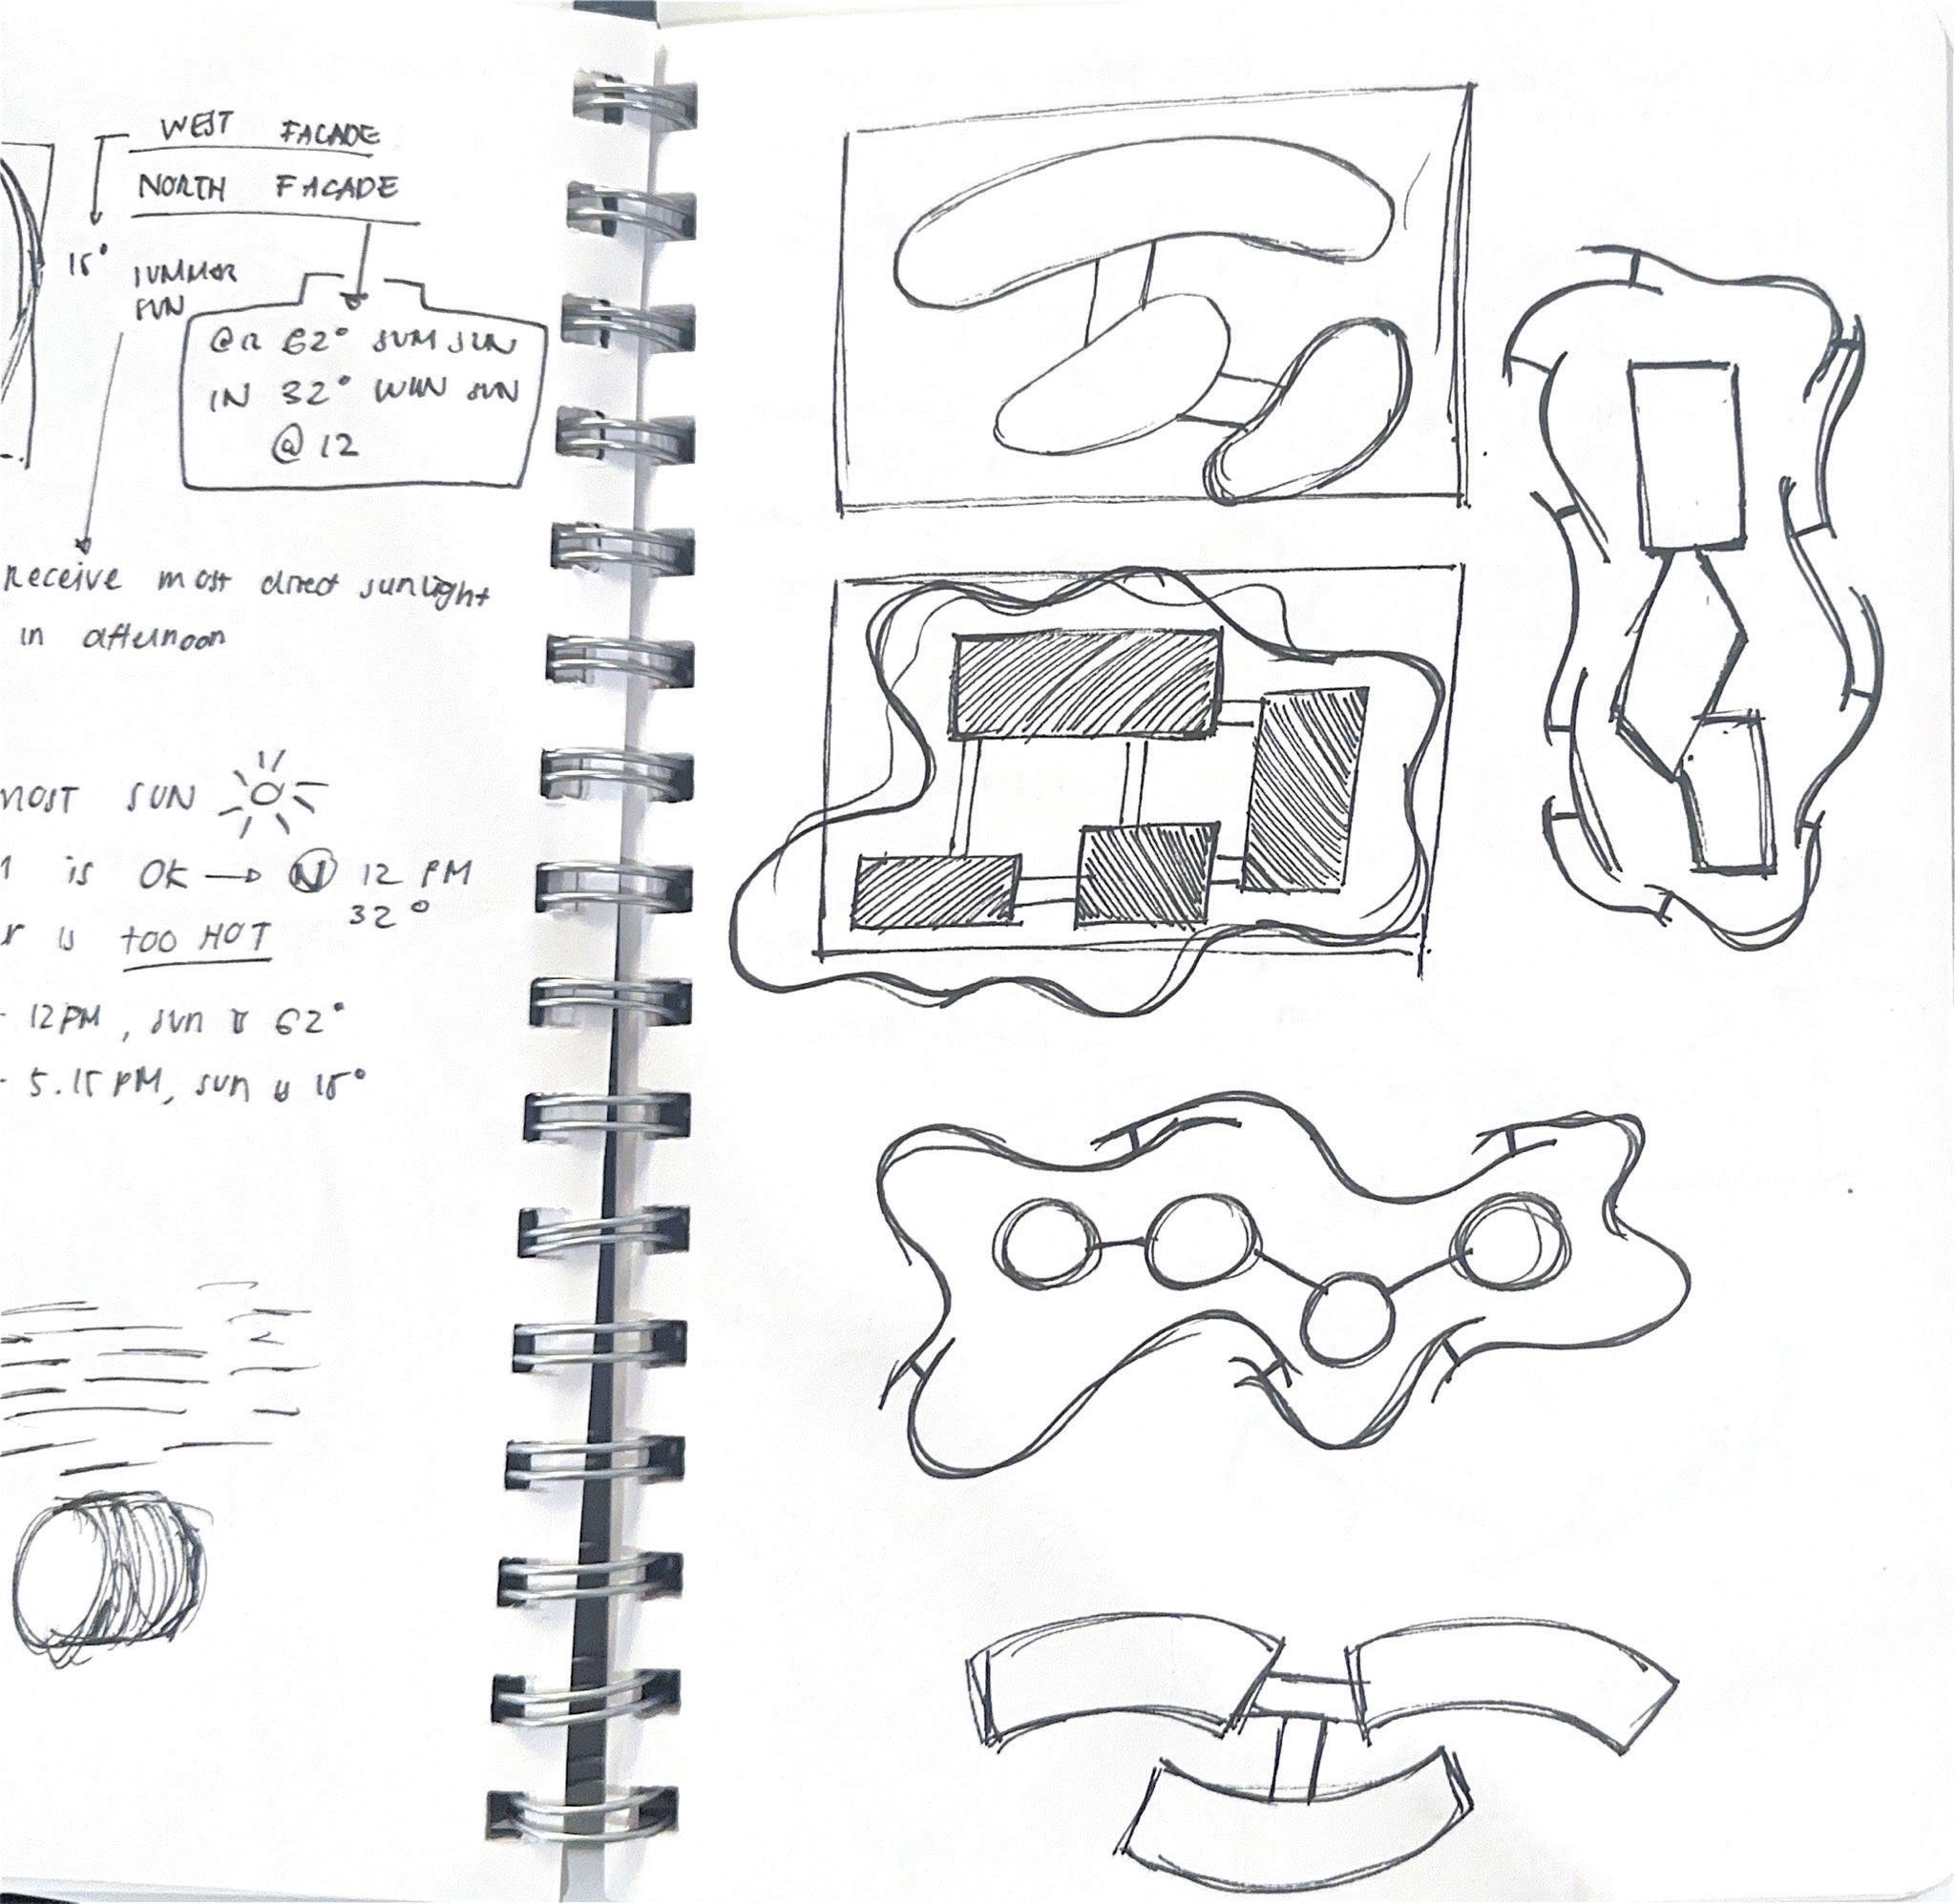 WEST FACADE
NORTH FACADE
15°
SUMMER
SUN
62° SUM SUN
IN 32° WIN SUN
@ 12
RECEIVE most direct sunlight
in afternoon
MOST SUN
is OK → N 12 PM
32°
is TOO HOT
- 12PM, sun is 62°
- 5.15 PM, sun is 15°